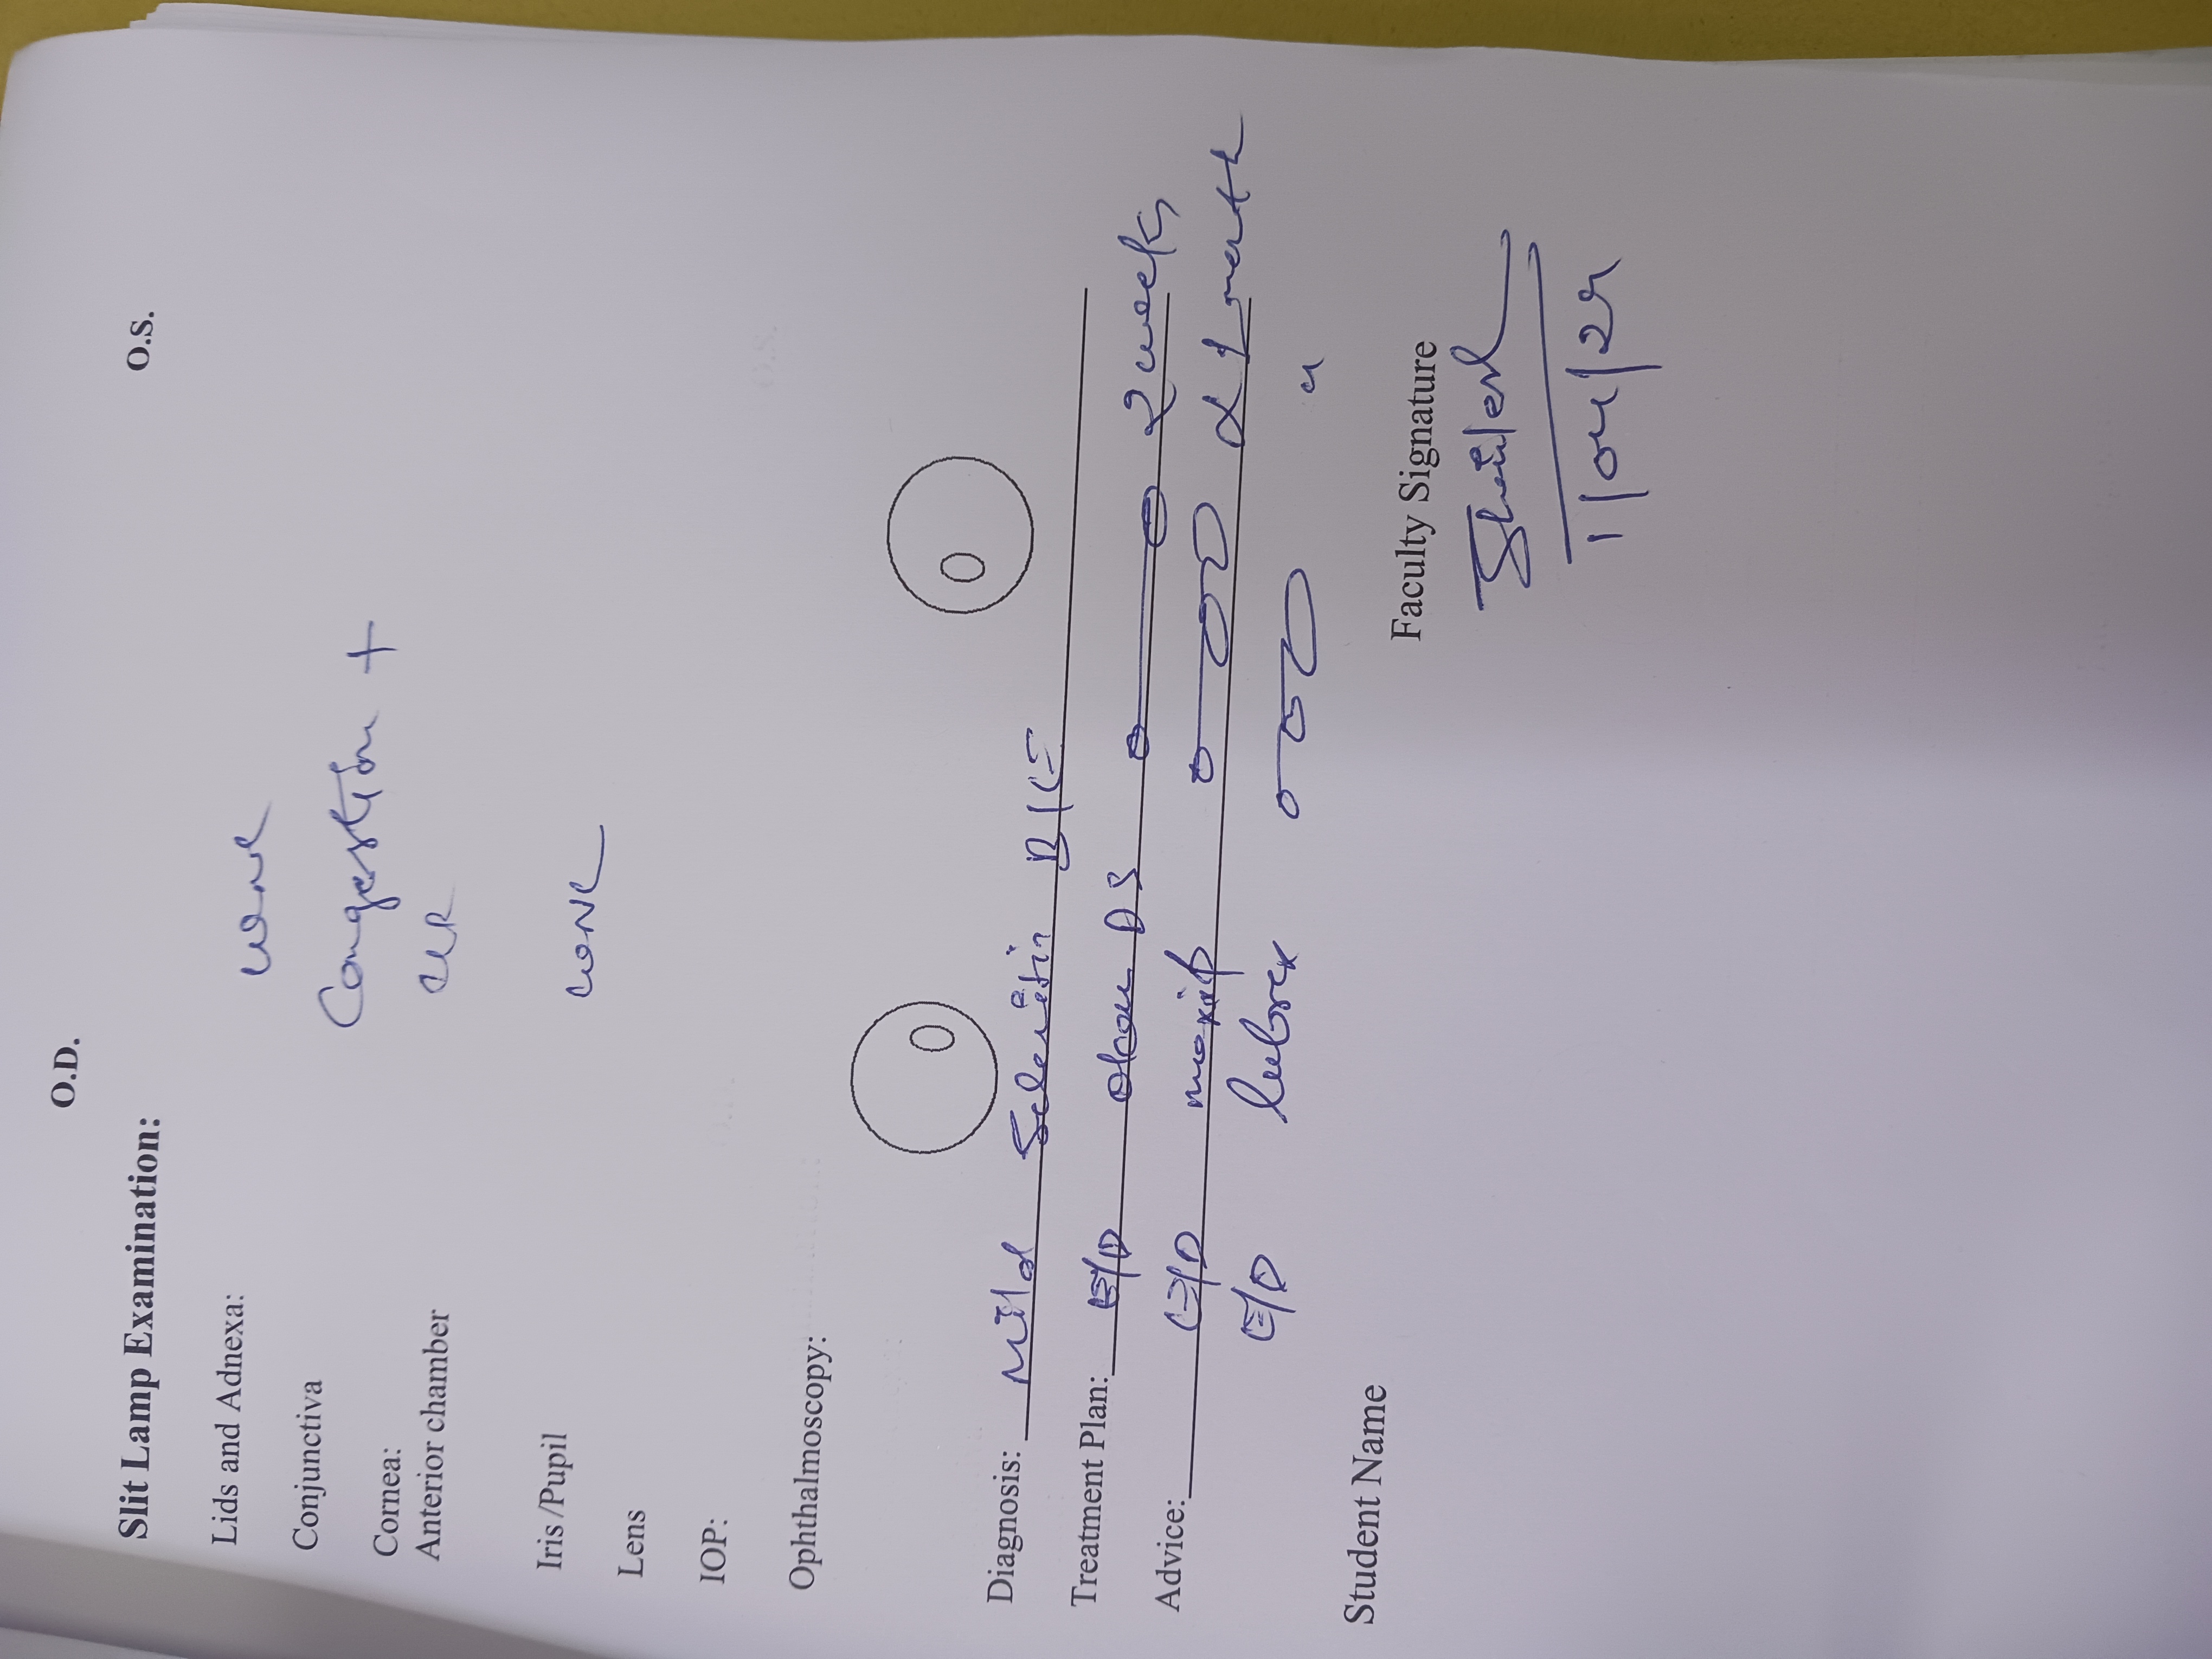 O.D.
O.S.
Slit Lamp Examination:
Lids and Adnexa: WNL
Conjunctiva Congestion +
Cornea:
Anterior chamber CLR
Iris /Pupil WNL
Lens
IOP:
Ophthalmoscopy:
Diagnosis: Mild Scleritis B/L E
Treatment Plan: E/D DS 2 weeks
Advice: E/D moxif x 1 month
E/D lubrex "
Student Name
Faculty Signature
1/04/24